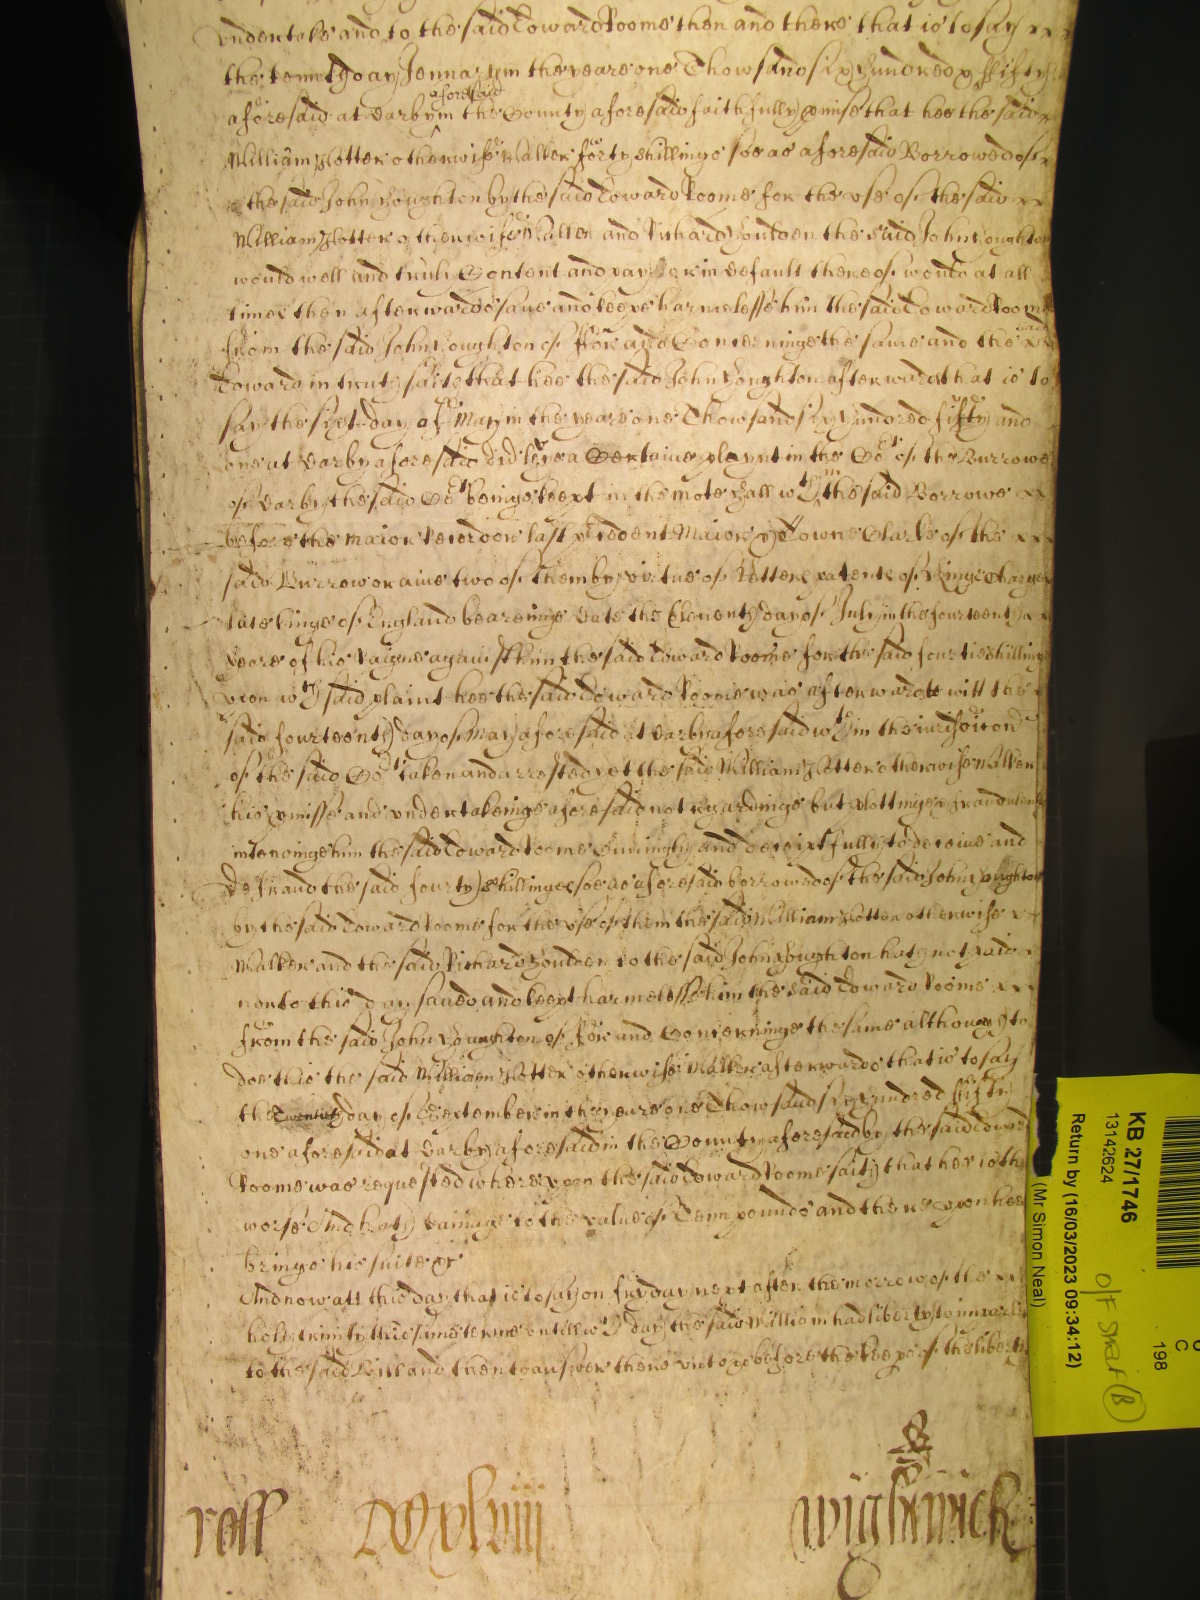 vndertake and to the said Edward Roome then and there that is to say xx
the tenth day Jennary in the yeare one Thowsand six hundred & ffifty
aforesaid at Darby aforesaid in the County aforesaid faithfully pmise that hee the said
William Potter otherwise Walker forty shillings soe as aforesaid Borrowed of
the said John Houghton by the said Edward Roome for the vse of the said xx
William Potter otherwise Walker and Richard Houlden the said John Houghton
would well and truly Content and pay or in default thereof would at all
times then afterwardes saue and keepe harmelesse him the said Edward Roome
from the said John Houghton of ffor and Concerninge the same and the said
Edward in truth saith that hee the said John Houghton afterwards that is to
say the first day of May in the yeare one Thowsand six hundred fifty and
one at Darby aforesaid did leyve a Certaine playnt in the Cort of the Burrowe
of Darby the said Cort beinge kept in the mote hall wth in the said Borrowe xx
before the maior Recordor last president Maior & Towne Clarke of the xxx
said Burrow or anie two of them by virtue of Letters patents of Kinge Charles
late kinge of England bearinge date the Eleventh day of July in the fourteenth
yeare of his Raigne against him the said Edward Roome for the said fourtie shillings
vpon wch said plaint hee the said Edward Roome was afterwards will the
said fourteenth day of May aforesaid at Darby aforesaid wth in the iurisdiccon
of the said Cort taken and arrested yet the said William Potter otherwise Walker
his pmisse and vndertakeinge aforesaid not regardinge but plottinge & fraudulently
intendinge him the said Edward Roome Cuningly and deceiptfully to deceiue and
defraud the said fourty shillinges soe as aforesaid borrowed of the said John Houghton
by the said Edward Roome for the vse of them the said William Potter otherwise xx
Walker and the said Richard Houlden to the said John Houghton hath not paid x
nor to this day saued and kept harmelesse him the said Edward Roome xxx
from the said John Houghton of ffor and Concerninge the same although to
doe this the said William Potter otherwise Walker afterwards that is to say
the Twentieth day of September in the yeare one Thowsand six hundred ffifty
one aforesaid at Darby aforesaid in the County aforesaid by the said Edward
Roome was requested wherevpon the said Edward Roome saith that hee is the
worse And hath damage to the value of Tenn pounds and therevpon hee
brings his suite &c
And now att this day that is to say on fryday next after the morrow of the xx
holy trinity this same terme vntill wch day the said William had liberty to imparle
to the said Bill and then to answer there vnto & before the keeps of the liberty
roll DCxlviii
wightwick
KB 27/1746
13142624
Return by (16/03/2023 09:34:12)
(Mr Simon Neal)
C
198